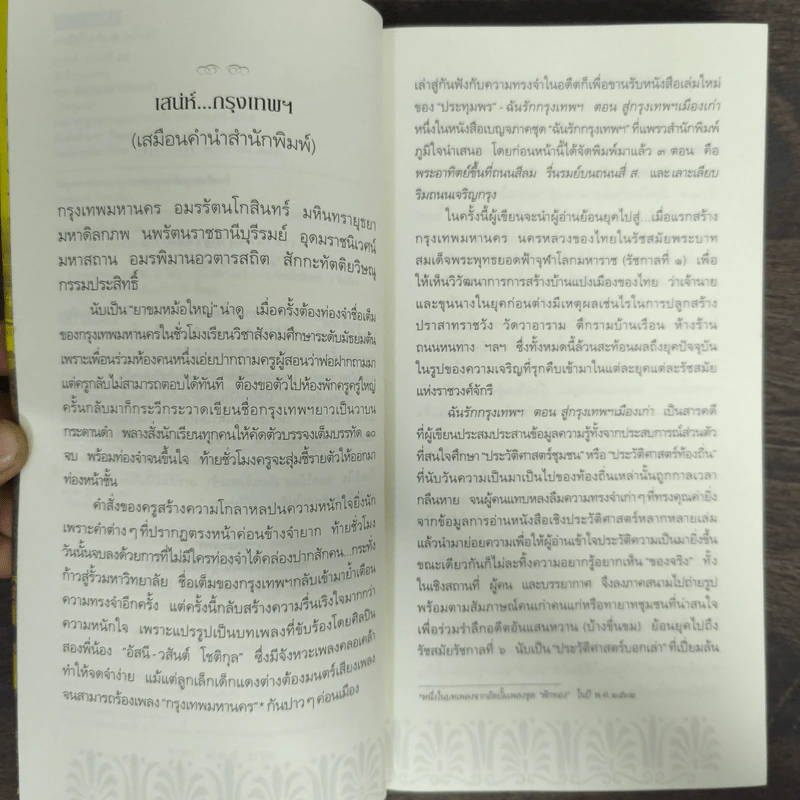 เสน่ห์...กรุงเทพฯ
(เสมือนคำนำสำนักพิมพ์)
กรุงเทพมหานคร อมรรัตนโกสินทร์ มหินทรายุธยา
มหาดิลกภพ นพรัตนราชธานีบุรีรมย์ อุดมราชนิเวศน์
มหาสถาน อมรพิมานอวตารสถิต สักกะทัตติยวิษณุ
กรรมประสิทธิ์
นับเป็น “ยาขมหม้อใหญ่” น่าดู เมื่อครั้งต้องท่องจำชื่อเต็ม
ของกรุงเทพมหานครในชั่วโมงเรียนวิชาสังคมศึกษาระดับมัธยมต้น
เพราะเพื่อนร่วมห้องคนหนึ่งเอ่ยปากถามครูผู้สอนว่าพ่อฝากถามมา
แต่ครูกลับไม่สามารถตอบได้ทันที ต้องขอตัวไปห้องพักครูครู่ใหญ่
ครั้นกลับมาก็กระวีกระวาดเขียนชื่อกรุงเทพฯยาวเป็นวาบน
กระดานดำ พลางสั่งนักเรียนทุกคนให้คัดตัวบรรจงเต็มบรรทัด ๑๐
จบ พร้อมท่องจำจนขึ้นใจ ท้ายชั่วโมงครูจะสุ่มชี้รายตัวให้ออกมา
ท่องหน้าชั้น
คำสั่งของครูสร้างความโกลาหลปนความหนักใจยิ่งนัก
เพราะคำต่าง ๆ ที่ปรากฏตรงหน้าค่อนข้างจำยาก ท้ายชั่วโมง
วันนั้นจบลงด้วยการที่ไม่มีใครท่องจำได้คล่องปากสักคน...กระทั่ง
ก้าวสู่รั้วมหาวิทยาลัย ชื่อเต็มของกรุงเทพฯกลับเข้ามาย้ำเตือน
ความทรงจำอีกครั้ง แต่ครั้งนี้กลับสร้างความรื่นเริงใจมากกว่า
ความหนักใจ เพราะแปรรูปเป็นบทเพลงที่ขับร้องโดยศิลปิน
สองพี่น้อง “อัสนี-วสันต์ โชติกุล” ซึ่งมีจังหวะเพลงคลอเคล้า
ทำให้จดจำง่าย แม้แต่ลูกเล็กเด็กแดงต่างต้องมนตร์เสียงเพลง
จนสามารถร้องเพลง “กรุงเทพมหานคร”* กันปาว ๆ ค่อนเมือง
เล่าสู่กันฟังกับความทรงจำในอดีตก็เพื่อขานรับหนังสือเล่มใหม่
ของ “ประทุมพร” - ฉันรักกรุงเทพฯ ตอน สู่กรุงเทพฯเมืองเก่า
หนึ่งในหนังสือเบญจภาคชุด “ฉันรักกรุงเทพฯ” ที่แพรวสำนักพิมพ์
ภูมิใจนำเสนอ โดยก่อนหน้านี้ได้จัดพิมพ์มาแล้ว ๓ ตอน คือ
พระอาทิตย์ขึ้นที่ถนนสีลม รื่นรมย์บนถนนสี่ ส. และ เลาะเลียบ
ริมถนนเจริญกรุง
ในครั้งนี้ผู้เขียนจะนำผู้อ่านย้อนยุคไปสู่...เมื่อแรกสร้าง
กรุงเทพมหานคร นครหลวงของไทยในรัชสมัยพระบาท
สมเด็จพระพุทธยอดฟ้าจุฬาโลกมหาราช (รัชกาลที่ ๑) เพื่อ
ให้เห็นวิวัฒนาการการสร้างบ้านแปงเมืองของไทย ว่าเจ้านาย
และขุนนางในยุคก่อนต่างมีเหตุผลเช่นไรในการปลูกสร้าง
ปราสาทราชวัง วัดวาอาราม ตึกรามบ้านเรือน ห้างร้าน
ถนนหนทาง ฯลฯ ซึ่งทั้งหมดนี้ล้วนสะท้อนผลถึงยุคปัจจุบัน
ในรูปของความเจริญที่รุกคืบเข้ามาในแต่ละยุคแต่ละรัชสมัย
แห่งราชวงศ์จักรี
ฉันรักกรุงเทพฯ ตอน สู่กรุงเทพฯเมืองเก่า เป็นสารคดี
ที่ผู้เขียนประสมประสานข้อมูลความรู้ทั้งจากประสบการณ์ส่วนตัว
ที่สนใจศึกษา “ประวัติศาสตร์ชุมชน” หรือ “ประวัติศาสตร์ท้องถิ่น”
ที่นับวันความเป็นมาเป็นไปของท้องถิ่นเหล่านั้นถูกกาลเวลา
กลืนหาย จนผู้คนแทบหลงลืมความทรงจำเก่า ๆ ที่ทรงคุณค่ายิ่ง
จากข้อมูลการอ่านหนังสือเชิงประวัติศาสตร์หลากหลายเล่ม
แล้วนำมาย่อยความเพื่อให้ผู้อ่านเข้าใจประวัติความเป็นมายิ่งขึ้น
ขณะเดียวกันก็ไม่ละทิ้งความอยากรู้อยากเห็น “ของจริง” ทั้ง
ในเชิงสถานที่ ผู้คน และบรรยากาศ จึงลงภาคสนามไปถ่ายรูป
พร้อมตามสัมภาษณ์คนเก่าคนแก่หรือทายาทชุมชนที่น่าสนใจ
เพื่อร่วมรำลึกอดีตอันแสนหวาน (บ้างขื่นขม) ย้อนยุคไปถึง
รัชสมัยรัชกาลที่ ๖ นับเป็น “ประวัติศาสตร์บอกเล่า” ที่เปี่ยมล้น
*หนึ่งในบทเพลงจากอัลบั้มเพลงชุด “ฟักทอง” ในปี พ.ศ.